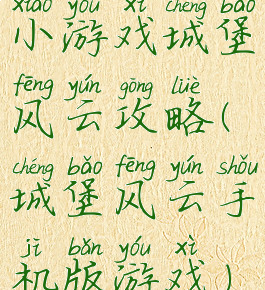 xiǎo yóu xì chéng bǎo
小游戏城堡
fēng yún gōng lüè
风云攻略(
chéng bǎo fēng yún shǒu
城堡风云手
jī bǎn yóu xì
机版游戏)